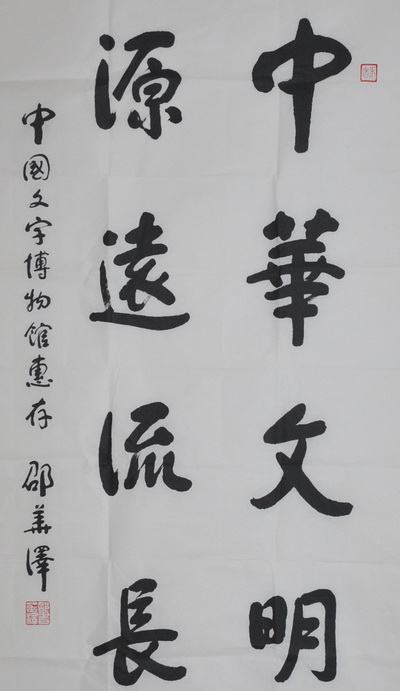 中華文明
源遠流長
中國文字博物館惠存 邵華澤